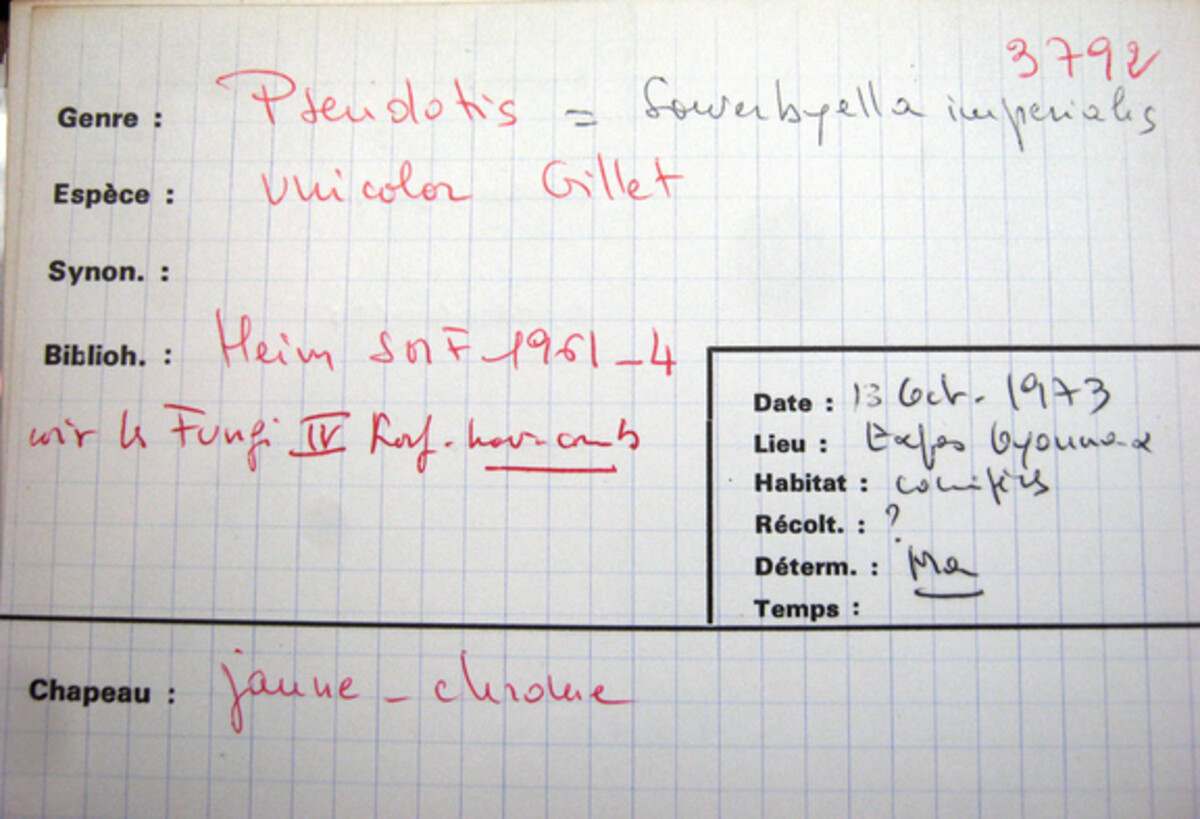 3792
Genre : Pseudotis = Sowerbyella imperialis
Espèce : unicolor Gillet
Synon. :
Biblioh. : Heim SMF 1961 - 4
voir Fungi IV Korf. nov. comb
Date : 13 Oct. 1973
Lieu : Expos Oyonnax
Habitat : conifères
Récolt. : ?
Déterm. : Ma
Temps :
Chapeau : jaune - chrome